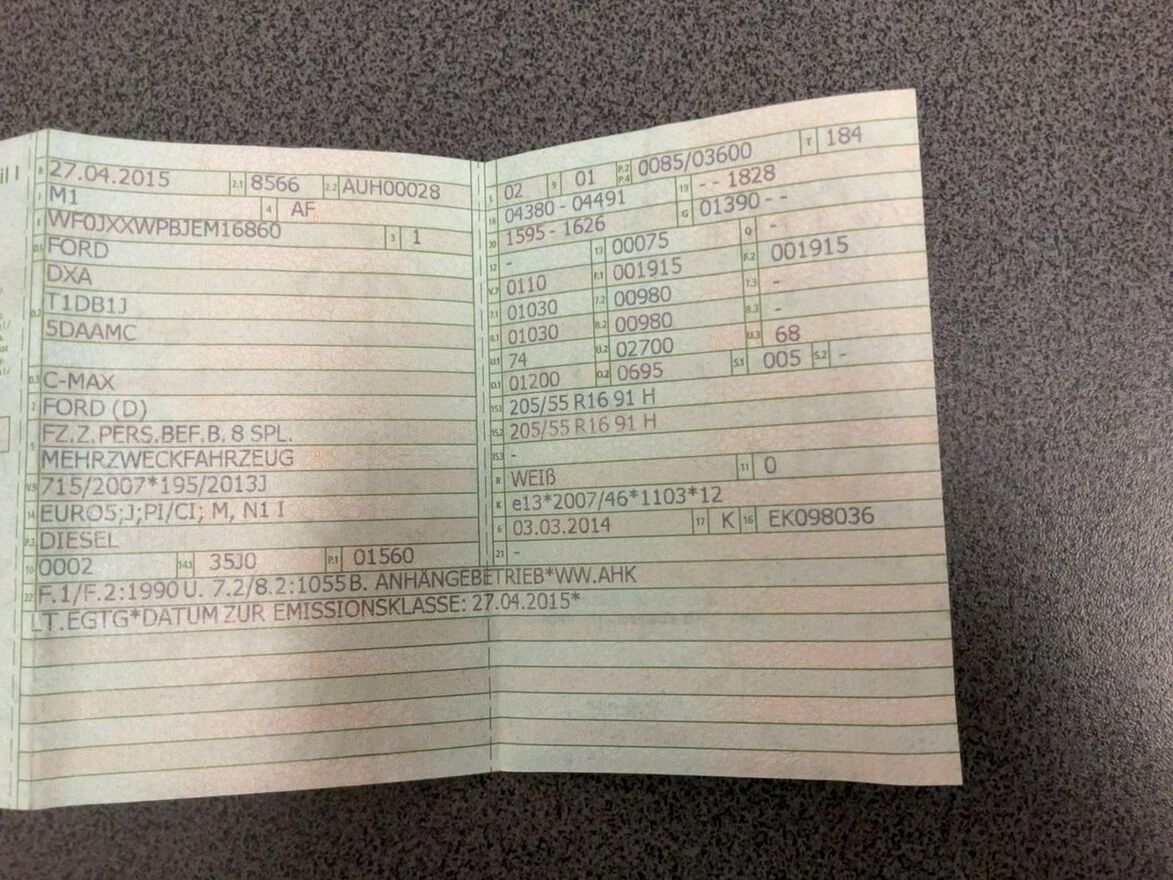 il I
B 27.04.2015 2.1 8566 2.2 AUH00028
J M1 4 AF
E WF0JXXWPBJEM16860 3 1
D.1 FORD
DXA
D.2 T1DB1J
5DAAMC
D.3 C-MAX
2 FORD (D)
5 FZ.Z.PERS.BEF.B. 8 SPL.
MEHRZWECKFAHRZEUG
V.9 715/2007*195/2013J
14 EURO5;J;PI/CI; M, N1 I
P.3 DIESEL
10 0002 14.1 35J0 P.1 01560
22 F.1/F.2:1990 U. 7.2/8.2:1055 B. ANHÄNGEBETRIEB*WW.AHK
LT.EGTG*DATUM ZUR EMISSIONSKLASSE: 27.04.2015*
L 02 9 01 P.2 P.4 0085/03600 T 184
18 04380 - 04491 19 - - 1828
20 1595 - 1626 G 01390 - -
12 - 13 00075 Q -
V.7 0110 F.1 001915 F.2 001915
7.1 01030 7.2 00980 7.3 -
8.1 01030 8.2 00980 8.3 -
U.1 74 U.2 02700 U.3 68
O.1 01200 O.2 0695 S.1 005 S.2 -
15.1 205/55 R16 91 H
15.2 205/55 R16 91 H
15.3 -
R WEIß 11 0
K e13*2007/46*1103*12
6 03.03.2014 17 K 16 EK098036
21 -